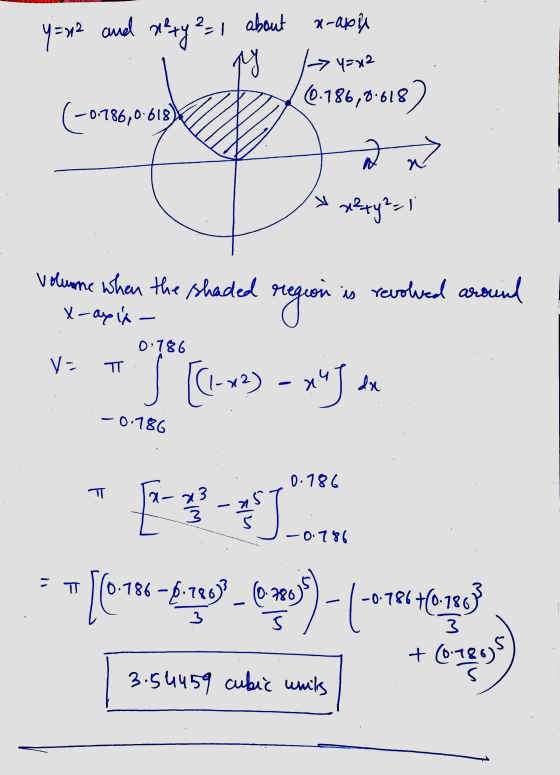 y=x² and x²+y²=1 about x-axis
y
→ y=x²
(0.786, 0.618)
(-0.786, 0.618)
x
↘ x²+y²=1
Volume when the shaded region is revolved around
x-axis —
V= π ∫_{-0.786}^{0.786} [(1-x²) - x⁴] dx
π [x - x³/3 - x⁵/5]_{-0.786}^{0.786}
= π [(0.786 - (0.786)³/3 - (0.786)⁵/5) - (-0.786 + (0.786)³/3
+ (0.786)⁵/5)
3.54459 cubic units